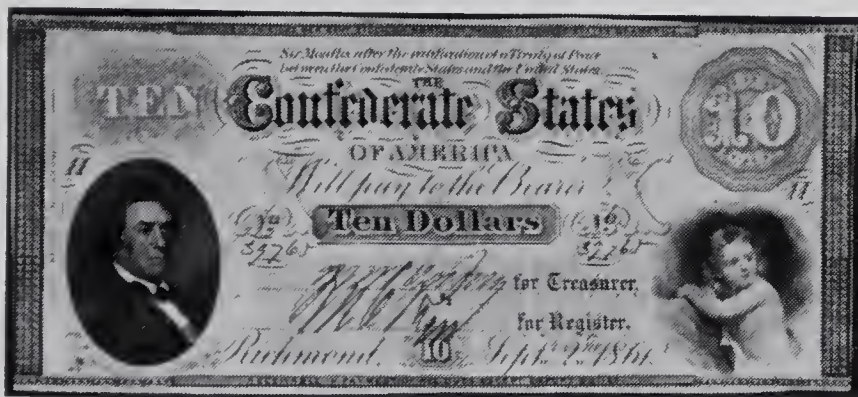 Six Months after the ratification of a Treaty of Peace
between the Confederate States and the United States
THE
TEN Confederate States 10
OF AMERICA
H Will pay to the Bearer H
Ten Dollars
39765 39765
for Treasurer.
for Register.
Richmond, 10 Sept. 2nd 1861